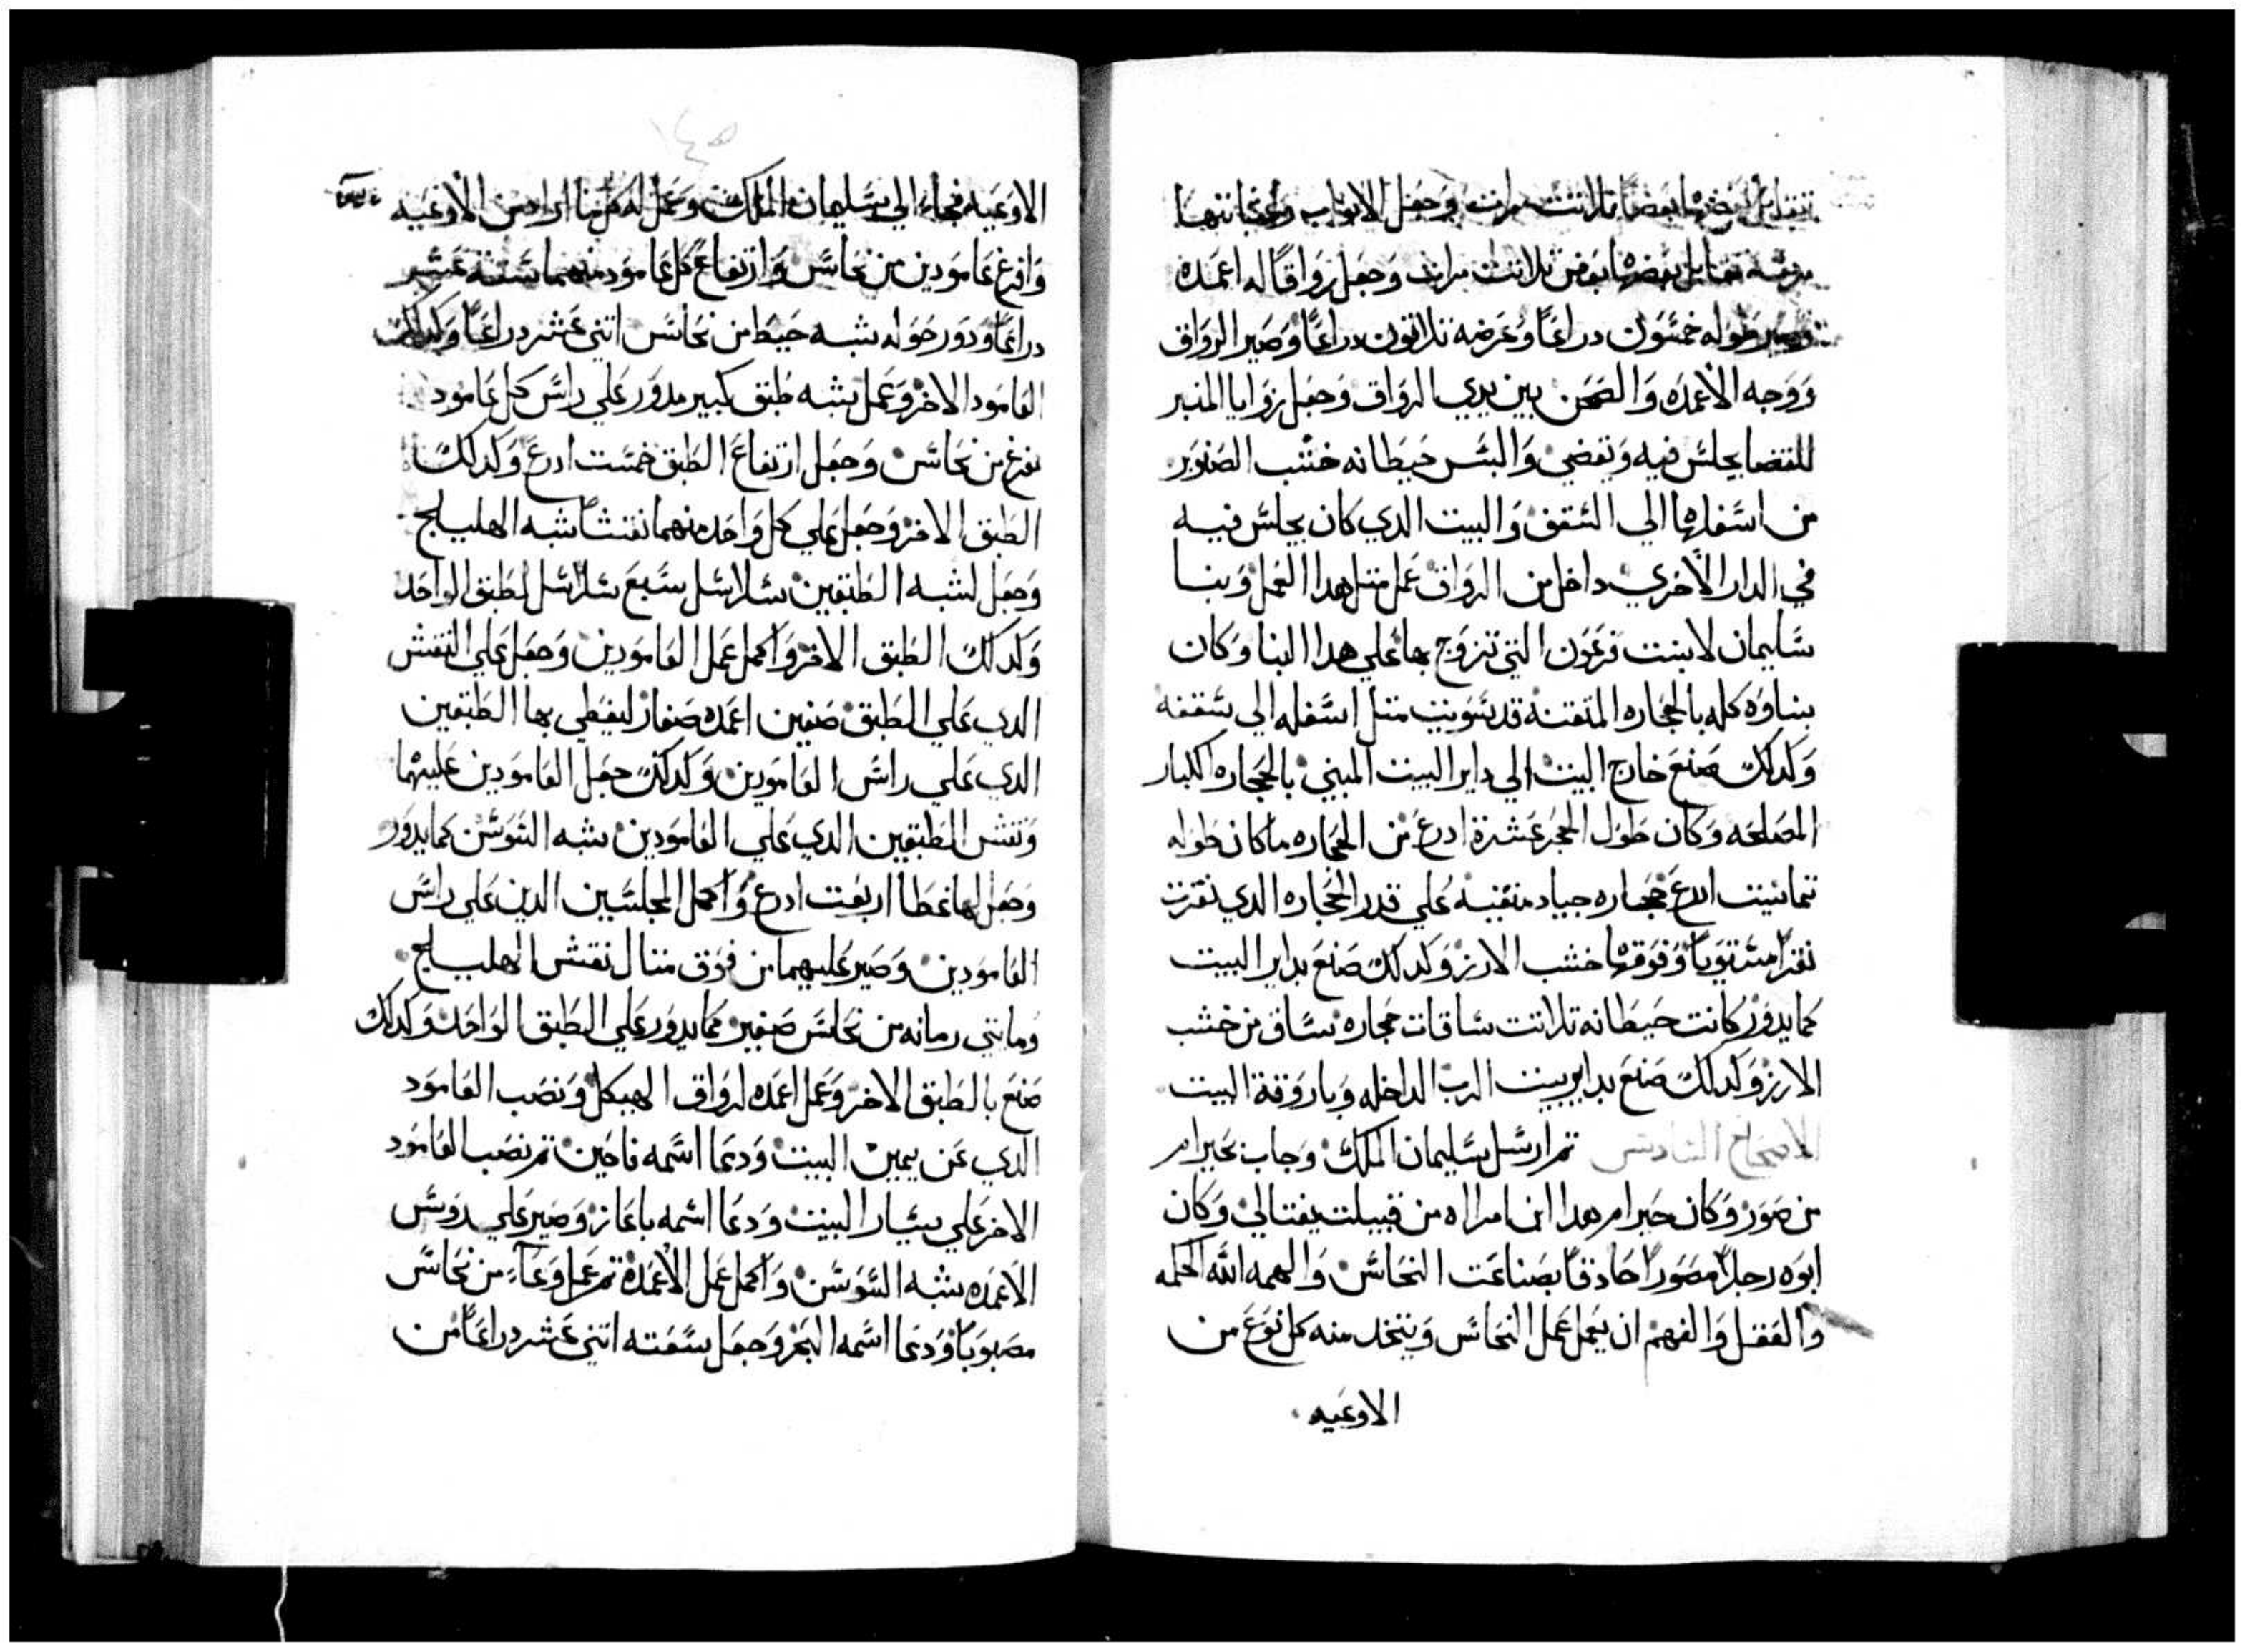 تتقابل بعضها بعضاً تلاتت مرات وجعل الابواب وعتباتها
مربعه تقابل بعضها بعض تلاتت مرات وجعل رواقاً له اعمده
وصير طوله خمسون دراعاً وعرضه تلاتون دراعاً وصير الرواق
ووجه الاعمده والصحن بين يدي الرواق وجعل زوايا المنبر
للقضا يجلس فيه ويقضي والبس حيطانه خشب الصنوبر
من اسفلها الي السقف والبيت الدي كان يجلس فيه
في الدار الاخري داخل من الرواق عمل متل هدا العمل وبنا
سليمان لابنت فرعون التي تزوج بها علي هدا البنا وكان
بناوه كله بالحجاره المتقنة قد سويت متل اسفله الي سقفه
وكدلك صنع خارج البيت الي داير البيت المبني بالحجاره الكبار
المصلحه وكان طول الحجر عشرة ادرع من الحجاره ماكان طوله
تمانيت ادرع حجاره جياد منقيه علي قدر الحجاره الدي نقرت
نقراً مستوياً وفوقها خشب الارز وكدلك صنع بداير البيت
كمايدور كانت حيطانه تلاتت ساقات حجاره ساق من خشب
الارز وكدلك صنع بداير بيت الرب الداخله وباروقة البيت
الاصحاح السادس تم ارسل سليمان الملك وجاب حيرام
من صور وكان حيرام هدا ابن امراه من قبيلت يفتالي وكان
ابوه رجلاً مصوراً حادقاً بصناعت النحاس والهمه الله الحكمه
والعقل والفهم ان يعمل عمل النحاس ويتخد منه كل نوع من
الاوعيه
الاوعيه فجاء الي سليمان الملك وعمل له كل ما اراد من الاوعيه
وافرغ عامودين من نحاس وارتفاع كل عامود منهما ستة عشر
دراعاً ودور حوله شبه حيط من نحاس اتني عشر دراعاً وكدلك
العامود الاخر وعمل شبه طبق كبير مدور علي راس كل عامود
مفرغ من نحاس وجعل ارتفاع الطبق خمست ادرع وكدلك
الطبق الاخر وجعل علي كل واحد منهما نقشاً شبه الهليلج
وجعل لشبه الطبقين سلاسل سبع سلاسل للطبق الواحد
وكدلك الطبق الاخر واكمل عمل العامودين وجعل علي النقش
الدي علي الطبق صفين اعمده صغار ليغطي بها الطبقين
الدي علي راس العامودين وكدلك جعل العامودين عليهما
ونقش الطبقين الدي علي العامودين شبه السوسن كمايدور
وجعل لها غطا اربعت ادرع واكمل المجلسين الدين علي راس
العامودين وصير عليهما من فوق متال نقش الهليلج
ومايتي رمانه من نحاس صفين كمايدور علي الطبق الواحد وكدلك
صنع بالطبق الاخر وعمل اعمده لرواق الهيكل ونصب العامود
الدي عن يمين البيت ودعا اسمه ناحين تم نصب العامود
الاخر علي يسار البيت ودعا اسمه باعاز وصير علي روس
الاعمده شبه السوسن واكمل عمل الاعمدة تم عمل وعاء من نحاس
مصبوباً ودعا اسمه البحر وجعل سعته اتني عشر دراعاً من